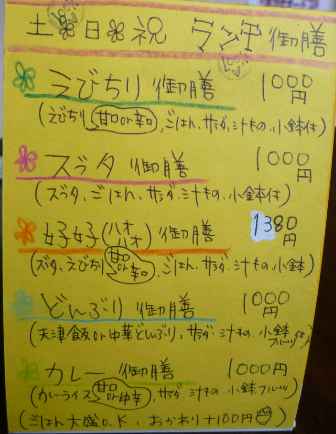 土❀日❀祝 ランチ御膳
えびちり御膳 1000円
(えびちり 甘口or辛口、ごはん、サラダ、汁もの、小鉢付)
スブタ 御膳 1000円
(スブタ、ごはん、サラダ、汁もの、小鉢付)
好好(ハオハオ)御膳 1380円
(スブタ、えびちり 甘口or辛口、ごはん、サラダ、汁もの、小鉢)
どんぶり 御膳 1000円
(天津飯or中華どんぶり、サラダ、汁もの、小鉢 フルーツ付)
カレー 御膳 1000円
(カレーライス 甘口or中辛、サラダ、汁もの、小鉢 フルーツ)
(ごはん大盛O.K、おかわり+100円)